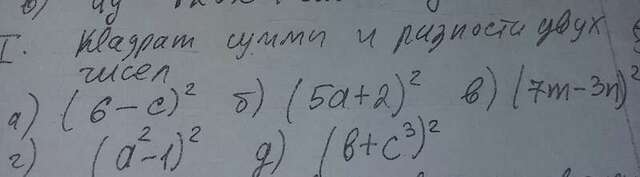 I. Квадрат суммы и разности двух
чисел
а) (6-c)² б) (5a+2)² в) (7m-3n)²
г) (a²-1)² д) (b+c³)²